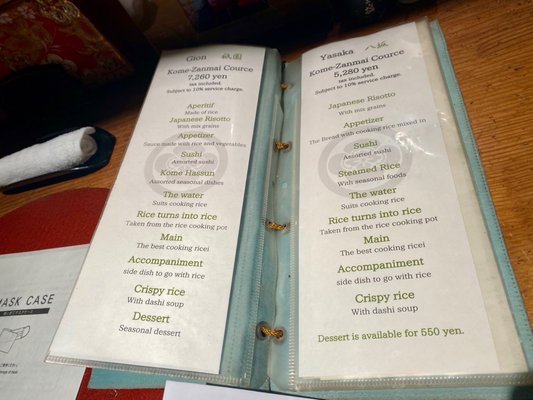 Gion 祇園
Kome-Zanmai Cource
7,260 yen
tax included.
Subject to 10% service charge.
Aperitif
Made of rice
Japanese Risotto
With mix grains
Appetizer
Sauce made with rice and vegetables
Sushi
Assorted sushi
Kome Hassun
Assorted seasonal dishes
The water
Suits cooking rice
Rice turns into rice
Taken from the rice cooking pot
Main
The best cooking ricei
Accompaniment
side dish to go with rice
Crispy rice
With dashi soup
Dessert
Seasonal dessert
Yasaka 八坂
Kome-Zanmai Cource
5,280 yen
tax included.
Subject to 10% service charge.
Japanese Risotto
With mix grains
Appetizer
The Bread with cooking rice mixed in
Sushi
Assorted sushi
Steamed Rice
With seasonal foods
The water
Suits cooking rice
Rice turns into rice
Taken from the rice cooking pot
Main
The best cooking ricei
Accompaniment
side dish to go with rice
Crispy rice
With dashi soup
Dessert is available for 550 yen.
MASK CASE